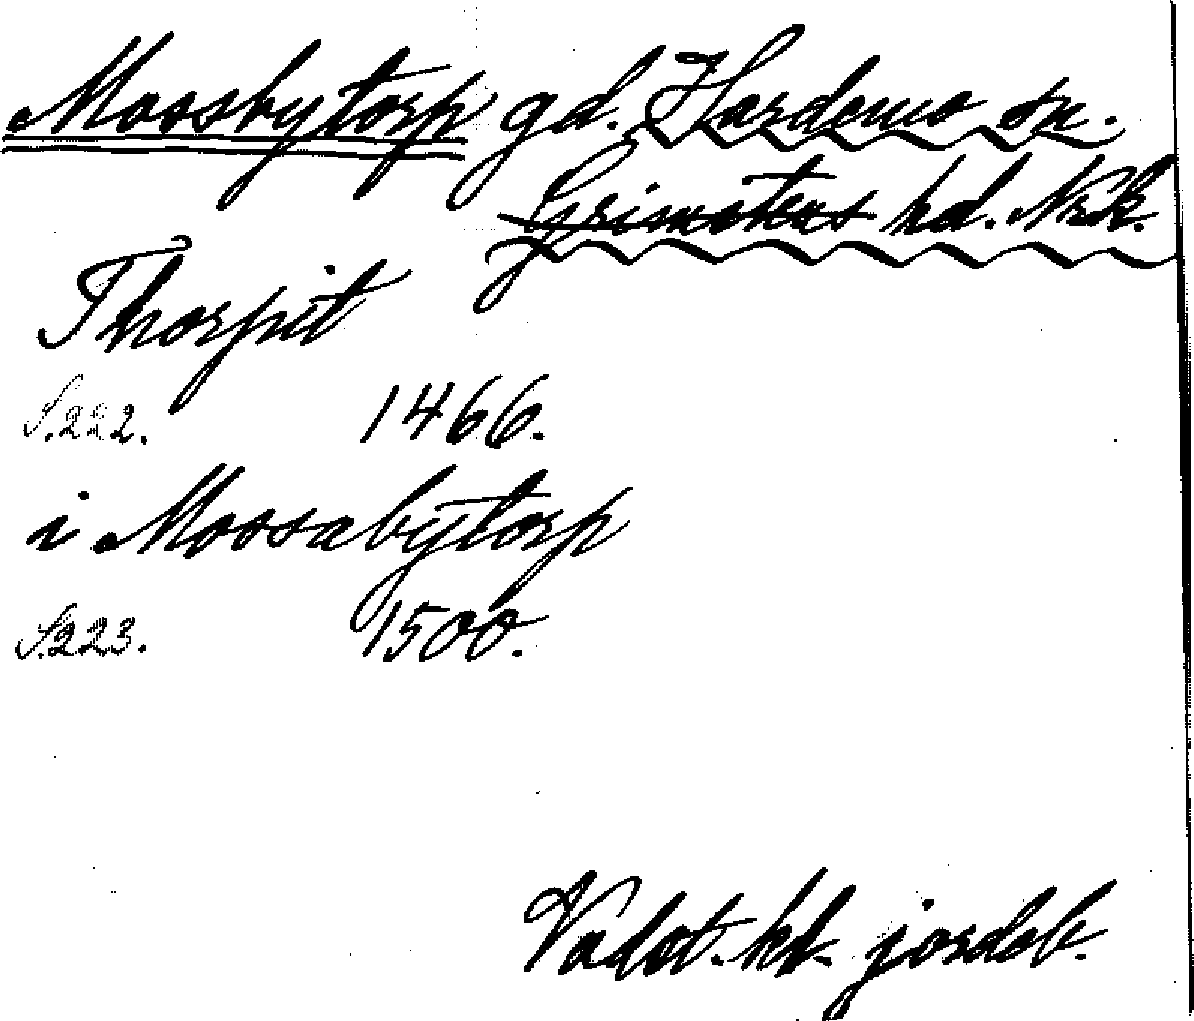 Mossbytorp gd. Hardemo sn.
Grimstens hd. Nrk.
Thorpit
S.222. 1466.
i Mossabytorp
S.223. 1500.
Vadst. kl. jordeb.